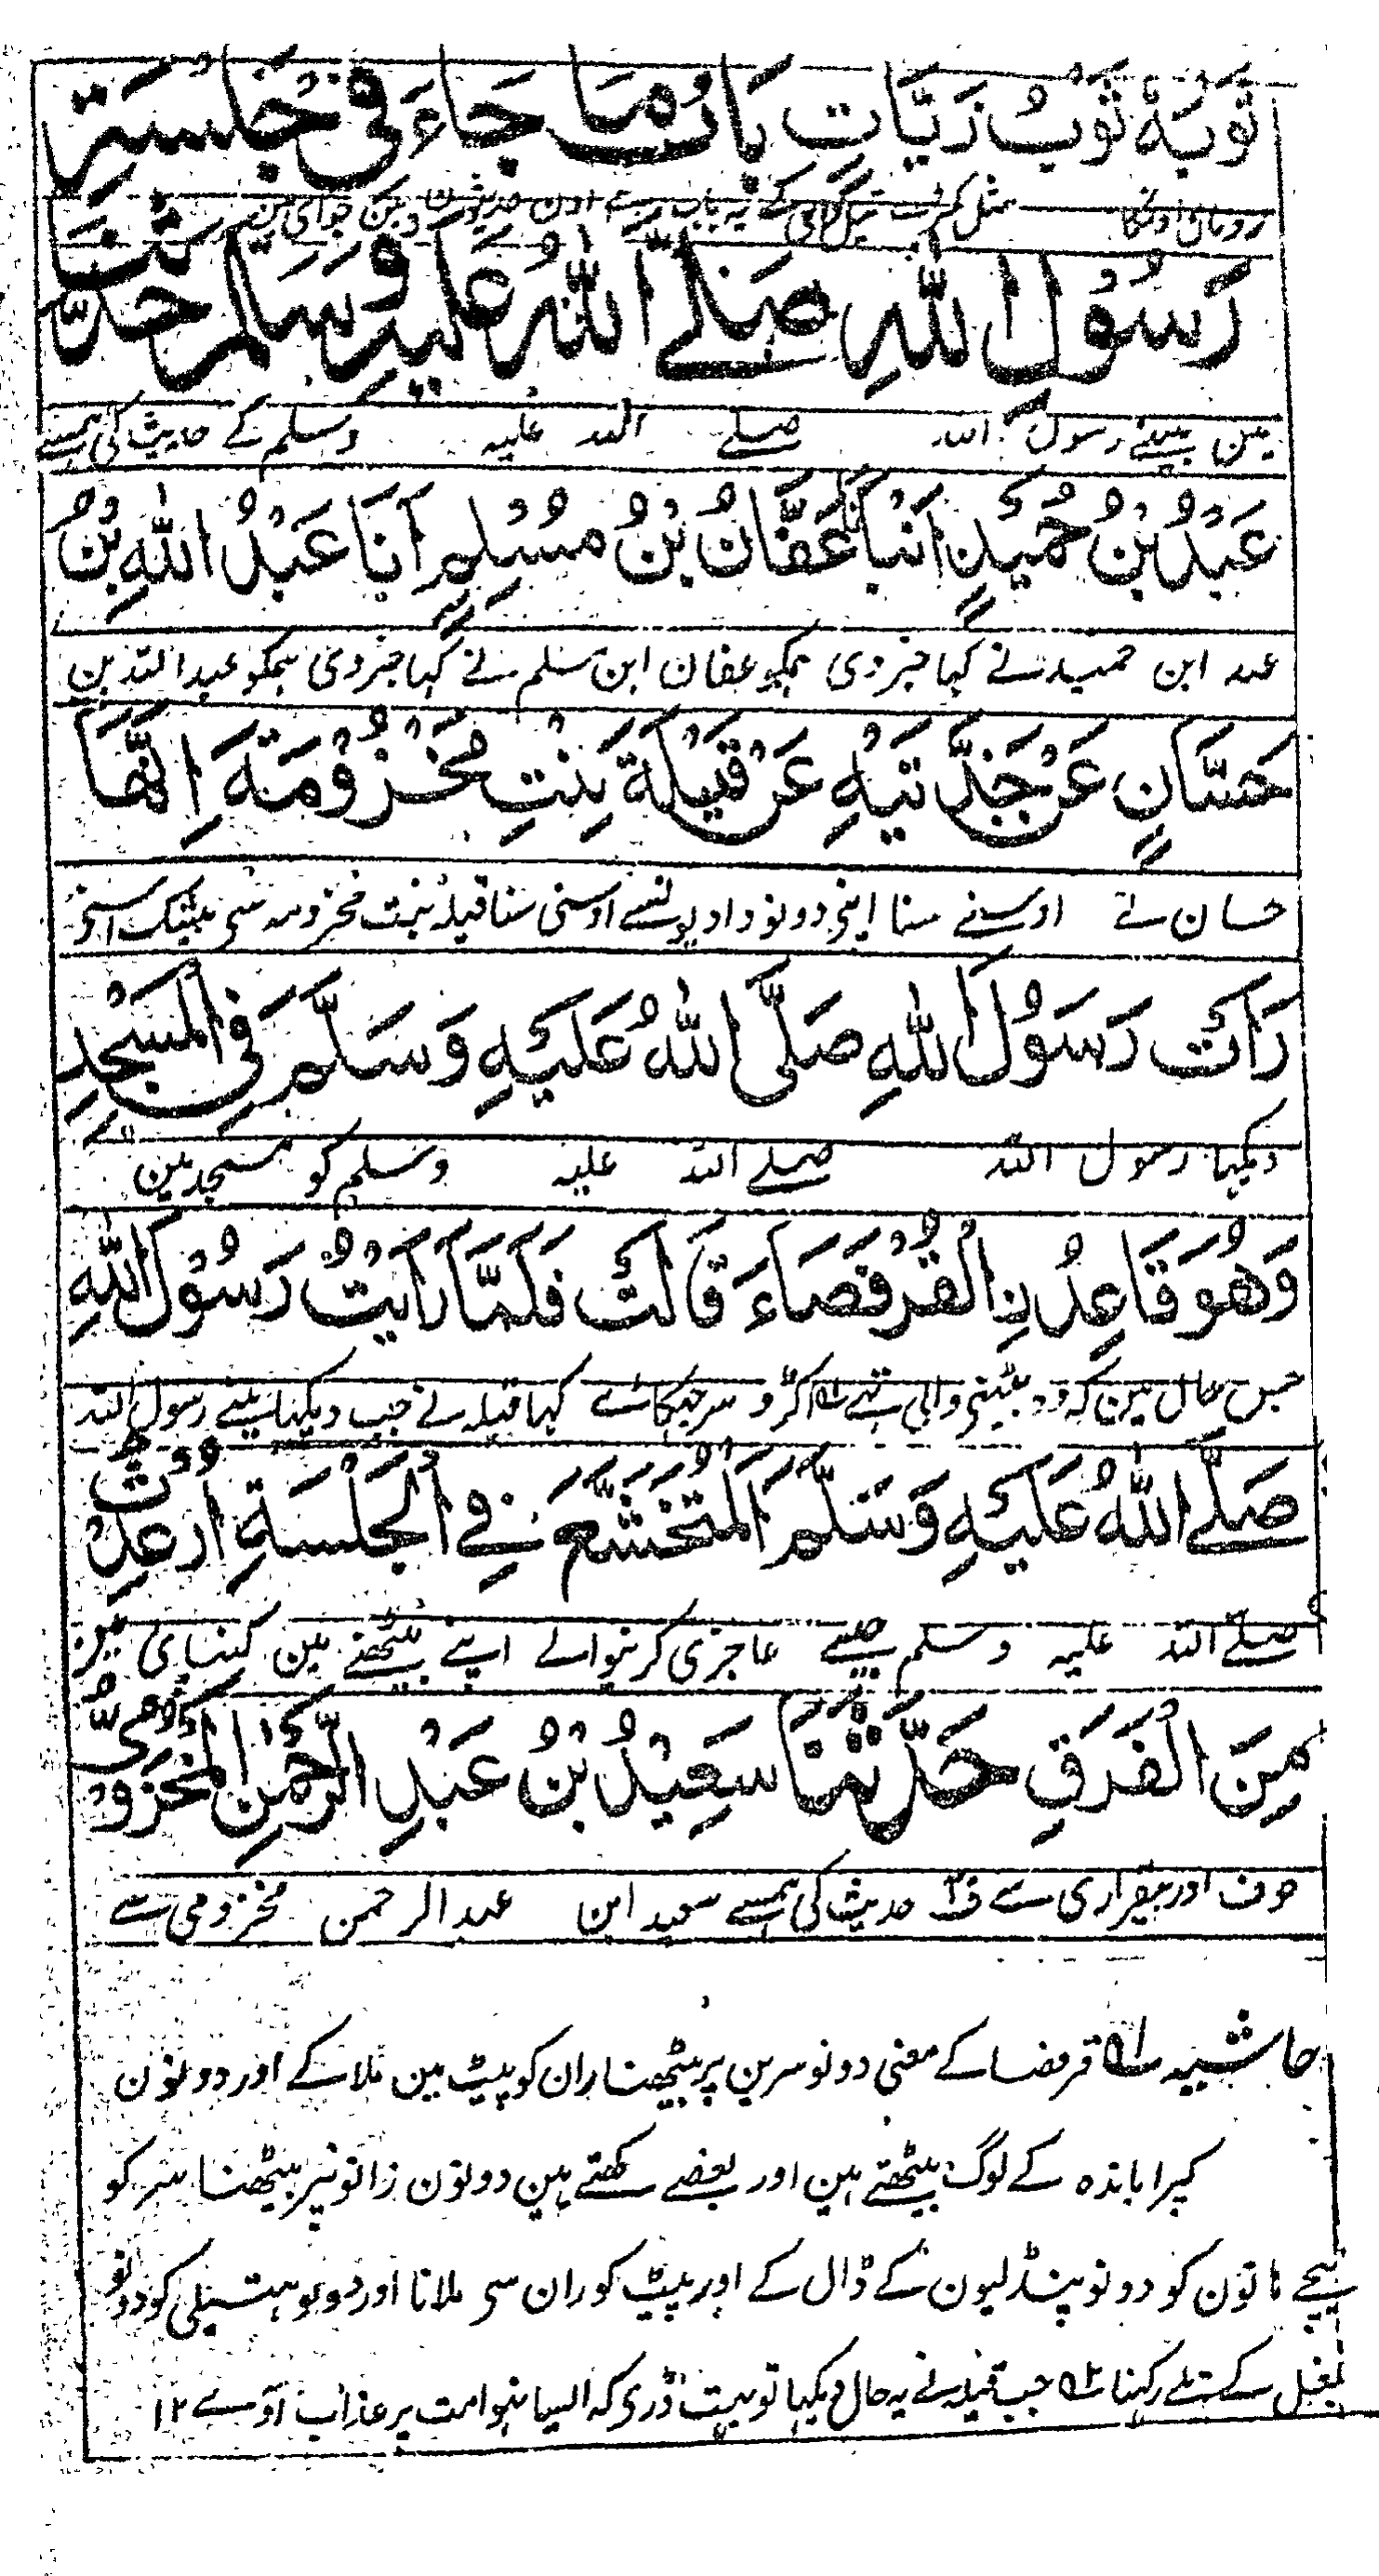 ثَوْبَهٗ ثَوْبُ زَيَّاتٍ بَابُ مَا جَاءَ فِي جِلْسَةِ
رومال اونکا مثل کپڑے تیل والی کے یہ باب ہے اون حدیثون مین جو آئی ہین
رَسُوْلِ اللّٰهِ صَلَّے اللّٰهُ عَلَيْهِ وَسَلَّمَ حَدَّثَنَا
بین بیٹھنے رسول اللہ صلے اللہ علیہ وسلم کے حدیث کی ہمسے
عَبْدُ بْنُ حُمَيْدٍ اَنْبَاَنَا عَفَّانُ بْنُ مُسْلِمٍ اَنَا عَبْدُ اللّٰهِ بْنُ
عبد ابن حمید نے کہا خبر دی ہمکو عفان ابن مسلم نے کہا خبر دی ہمکو عبد اللہ بن
حَسَّانٍ عَنْ جَدَّتَيْهِ عَنْ قَيْلَةَ بِنْتِ مَخْزُوْمَةَ اِنَّهَا
حسان نے اوسنے سنا اپنی دونو دادیونسے اوسنی سنا قیلہ بنت مخزومہ سی بیشک اوسنی
رَاَتْ رَسُوْلَ اللّٰهِ صَلَّى اللّٰهُ عَلَيْهِ وَسَلَّمَ فِي الْمَسْجِدِ
دیکہا رسول اللہ صلے اللہ علیہ وسلم کو مسجد مین
وَهُوَ قَاعِدُ نِ الْقُرْفُصَاءَ قَالَتْ فَلَمَّا رَاَيْتُ رَسُوْلَ اللّٰهِ
جس حال مین کہ وہ بیٹھنی والی تہے اکڑو سر جہکائے کہا قیلہ نے جب دیکہا مینے رسول اللہ
صَلَّے اللّٰهُ عَلَيْهِ وَسَلَّمَ الْمُتَخَشِّعَ فِے الْجِلْسَةِ اُرْعِدْتُ
صلے اللہ علیہ وسلم جیسے عاجزی کرنیوالے اپنے بیٹھنے مین کپنای مین
مِنَ الْفَرَقِ حَدَّثَنَا سَعِيْدُ بْنُ عَبْدِ الرَّحْمٰنِ الْمَخْزُوْمِيُّ
خوف اور بیقراری سے ف۲ حدیث کی ہمسے سعید ابن عبد الرحمن مخزومی سے
حاشیہ ف۱ قرفصا کے معنی دونو سرین پر بیٹھنا ران کو پیٹ مین ملا کے اور دونون
کپڑا باندہ کے لوگ بیٹھتے ہین اور بعضے کہتے ہین دونون زانو پر بیٹھنا سر کو
نیچے ہاتون کو دونو پنڈلیون کے ڈال کے اور پیٹ کو ران سی ملانا اور دونو ہتیلی کو دونو
بغل کے تلے رکہنا ف۲ جب قیلہ نے یہ حال دیکہا تو بہت ڈری کہ ایسا نہو امت پر عذاب آوے ۱۲